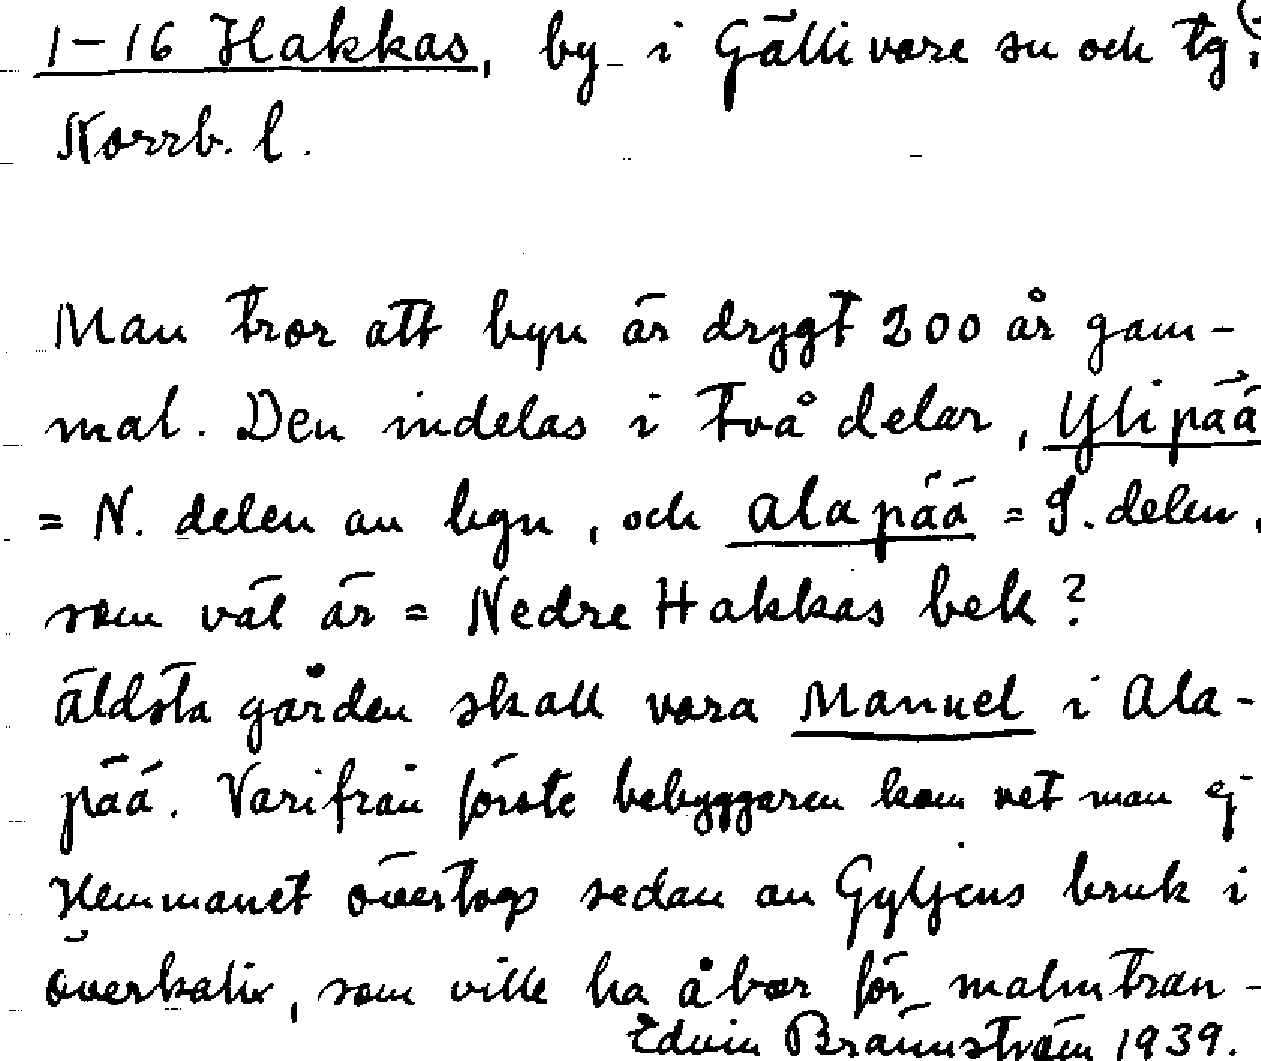 1-16 Hakkas, by i Gällivare sn och tg,
Norrb. l.
Man tror att byn är drygt 200 år gam-
mal. Den indelas i två delar, Ylipää
= N. delen av byn, och Alapää = S. delen,
som väl är = Nedre Hakkas bek?
Äldsta gården skall vara Manuel i Ala-
pää. Varifrån förste bebyggaren kom vet man ej
Hemmanet övertogs sedan av Gyljens bruk i
Överkalix, som ville ha åbor för malmtran-
Edvin Brännström 1939.